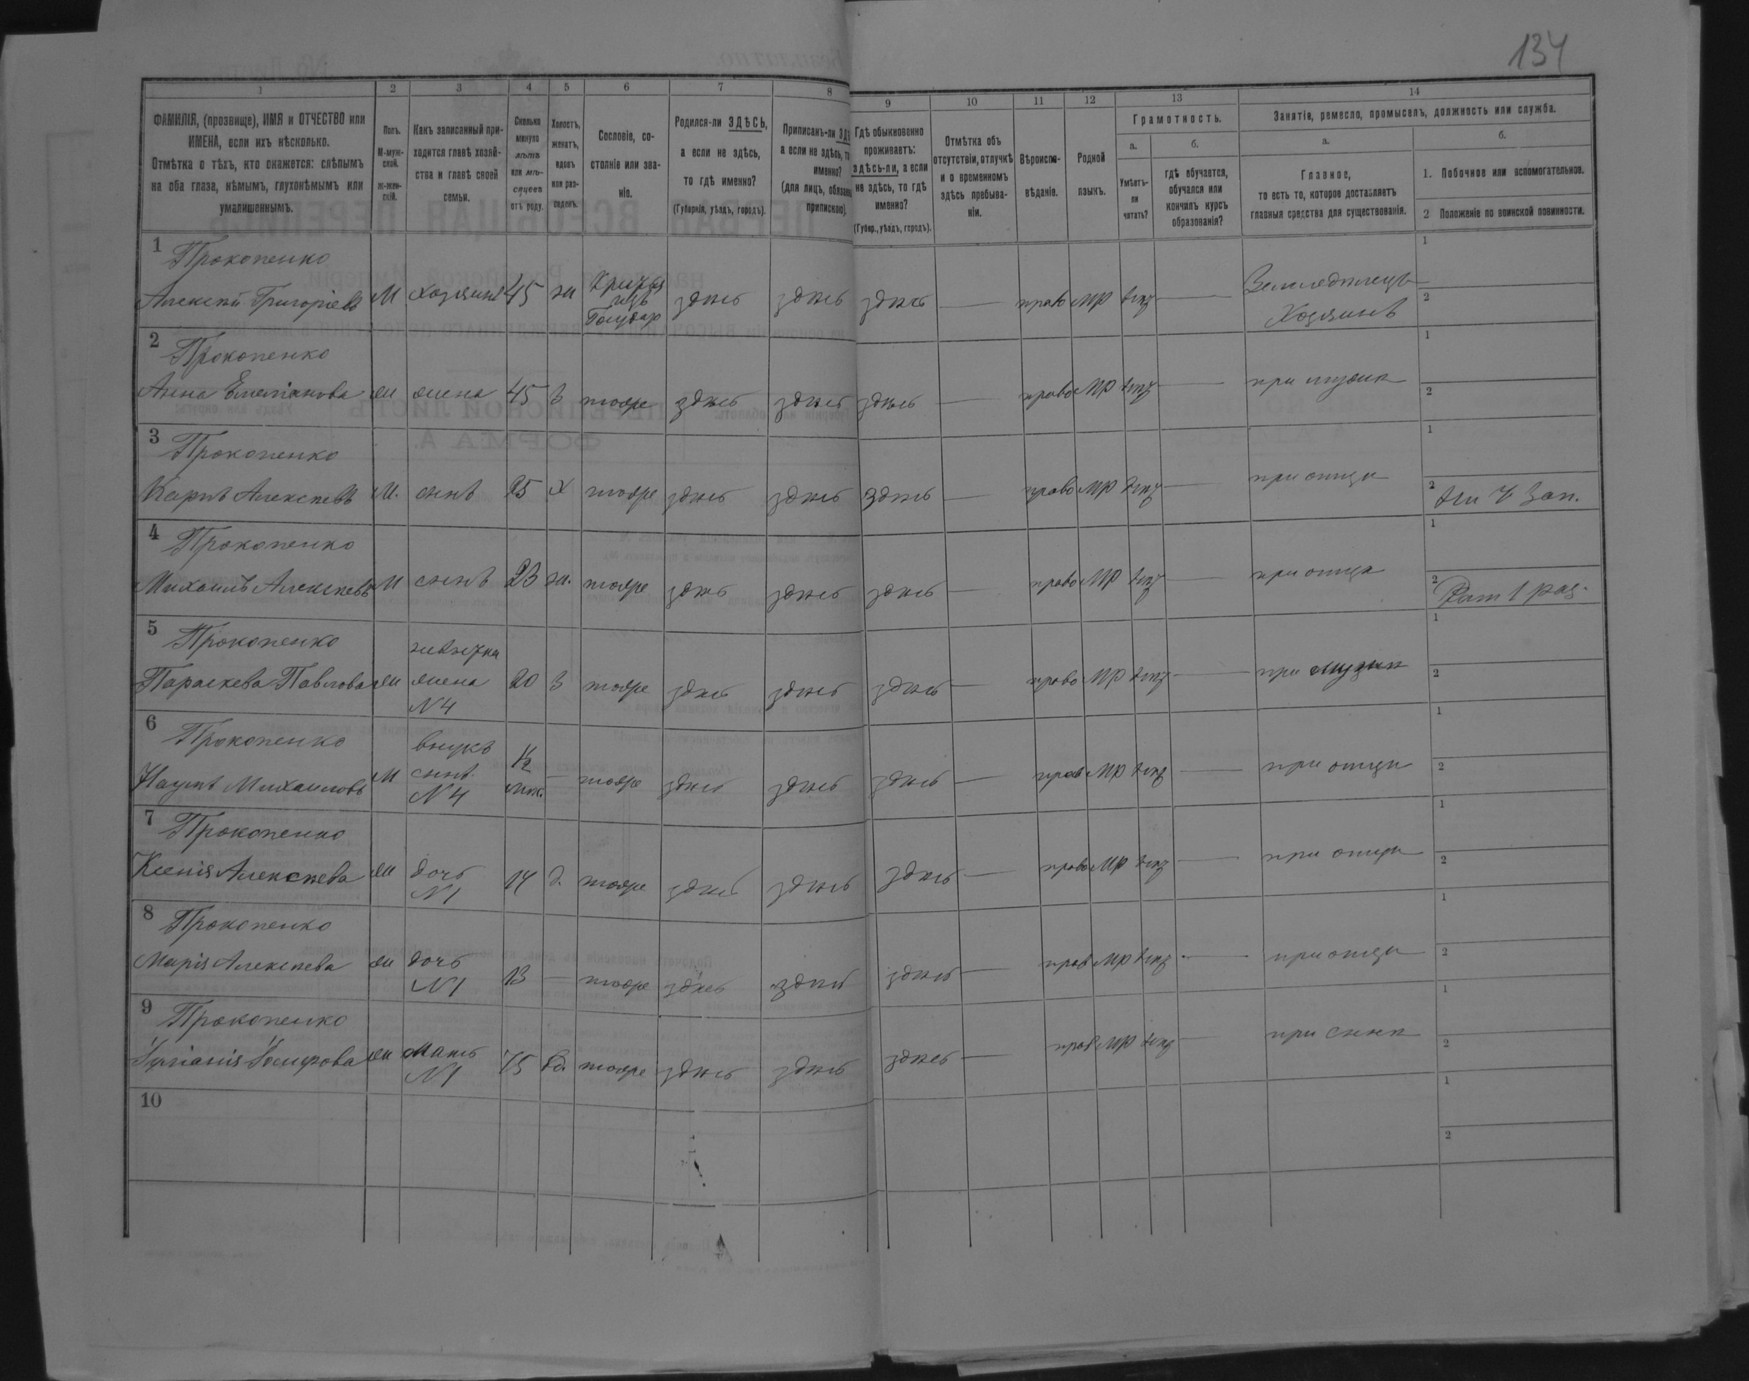 134
1 2 3 4 5 6 7 8 9 10 11 12 13 14
ФАМИЛІЯ, (прозвище), ИМЯ и ОТЧЕСТВО или
ИМЕНА, если ихъ нѣсколько.
Отмѣтка о тѣхъ, кто окажется: слѣпымъ
на оба глаза, нѣмымъ, глухонѣмымъ или
умалишеннымъ.
Полъ.
М-муж-
ской.
ж-жен-
скій.
Какъ записанный при-
ходится главѣ хозяй-
ства и главѣ своей
семьи.
Сколько
минуло
лѣтъ
или мѣ-
сяцевъ
отъ роду.
Холостъ,
женатъ,
вдовъ
или раз-
веденъ.
Сословіе, со-
стояніе или зва-
ніе.
Родился-ли ЗДѢСЬ,
а если не здѣсь,
то гдѣ именно?
(Губернія, уѣздъ, городъ).
Приписанъ-ли
а если не здѣсь,
именно?
(для лицъ,
припискою).
Гдѣ обыкновенно
проживаетъ:
здѣсь-ли, а если
не здѣсь, то гдѣ
именно?
(Губер., уѣздъ, городъ).
Отмѣтка объ
отсутствіи, отлучкѣ
и о временномъ
здѣсь пребыва-
ніи.
Вѣроиспо-
вѣданіе.
Родной
языкъ.
Грамотность.
а.
Умѣетъ-
ли
читать?
б.
гдѣ обучается,
обучался или
кончилъ курсъ
образованія?
Занятіе, ремесло, промыселъ, должность или служба.
а.
Главное,
то есть то, которое доставляетъ
главныя средства для существованія.
б.
1. Побочное или вспомогательное.
2 Положеніе по воинской повинности.
1 Прокопенко
Алексѣй Григоріевъ М хозяинъ 45 ж здѣсь здѣсь здѣсь — право МР — Земледѣлецъ
Хозяинъ
1
2
2 Прокопенко
Анна жена 45 З тоже здѣсь здѣсь здѣсь — право МР — при мужѣ
1
2
3 Прокопенко
Карпъ Алексѣевъ М. сынъ 25 Х тоже здѣсь здѣсь здѣсь — право МР — при отцѣ
1
2
4 Прокопенко
Михаилъ Алексѣевъ М сынъ 23 ж. тоже здѣсь здѣсь здѣсь — право МР — при отцѣ
1
2 Рат 1 раз.
5 Прокопенко невѣстка
Параскева Павлова жена 20 З тоже здѣсь здѣсь здѣсь — право МР — при мужѣ
N4
1
2
6 Прокопенко внукъ
Наумъ Михаиловъ М сынъ — тоже здѣсь здѣсь здѣсь — прав МР — при отцѣ
N4
1
2
7 Прокопенко
Ксенія Алексѣева дочь 14 тоже здѣсь здѣсь здѣсь — право МР — при отцѣ
N1
1
2
8 Прокопенко
Марія Алексѣева дочь 13 — тоже здѣсь здѣсь здѣсь — прав МР — при отцѣ
N1
1
2
9 Прокопенко
мать 75 тоже здѣсь здѣсь здѣсь — прав МР — при сынѣ
N1
1
2
10
1
2